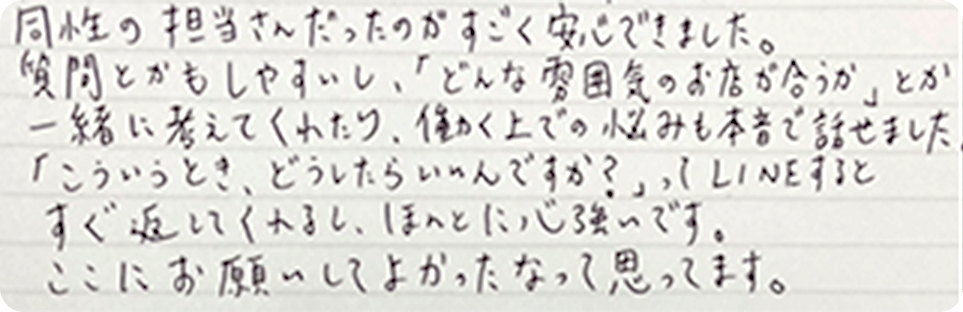 同性の担当さんだったのがすごく安心できました。
質問とかもしやすいし、「どんな雰囲気のお店が合うか」とか
一緒に考えてくれたり、働く上での悩みも本音で話せました。
「こういうとき、どうしたらいいんですか?」ってLINEすると
すぐ返してくれるし、ほんとに心強いです。
ここにお願いしてよかったなって思ってます。